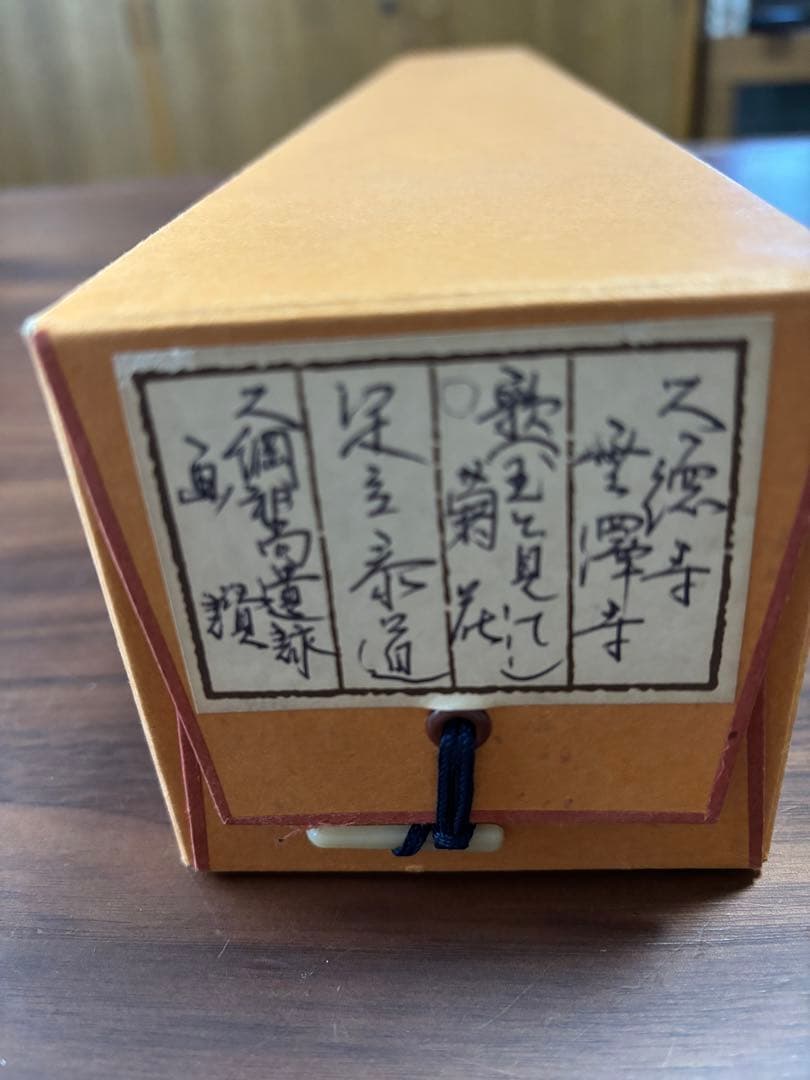 大徳寺
雲澤寺
歌(玉と見
菊花
足立泰道
大綱和尚遺詠
画讃